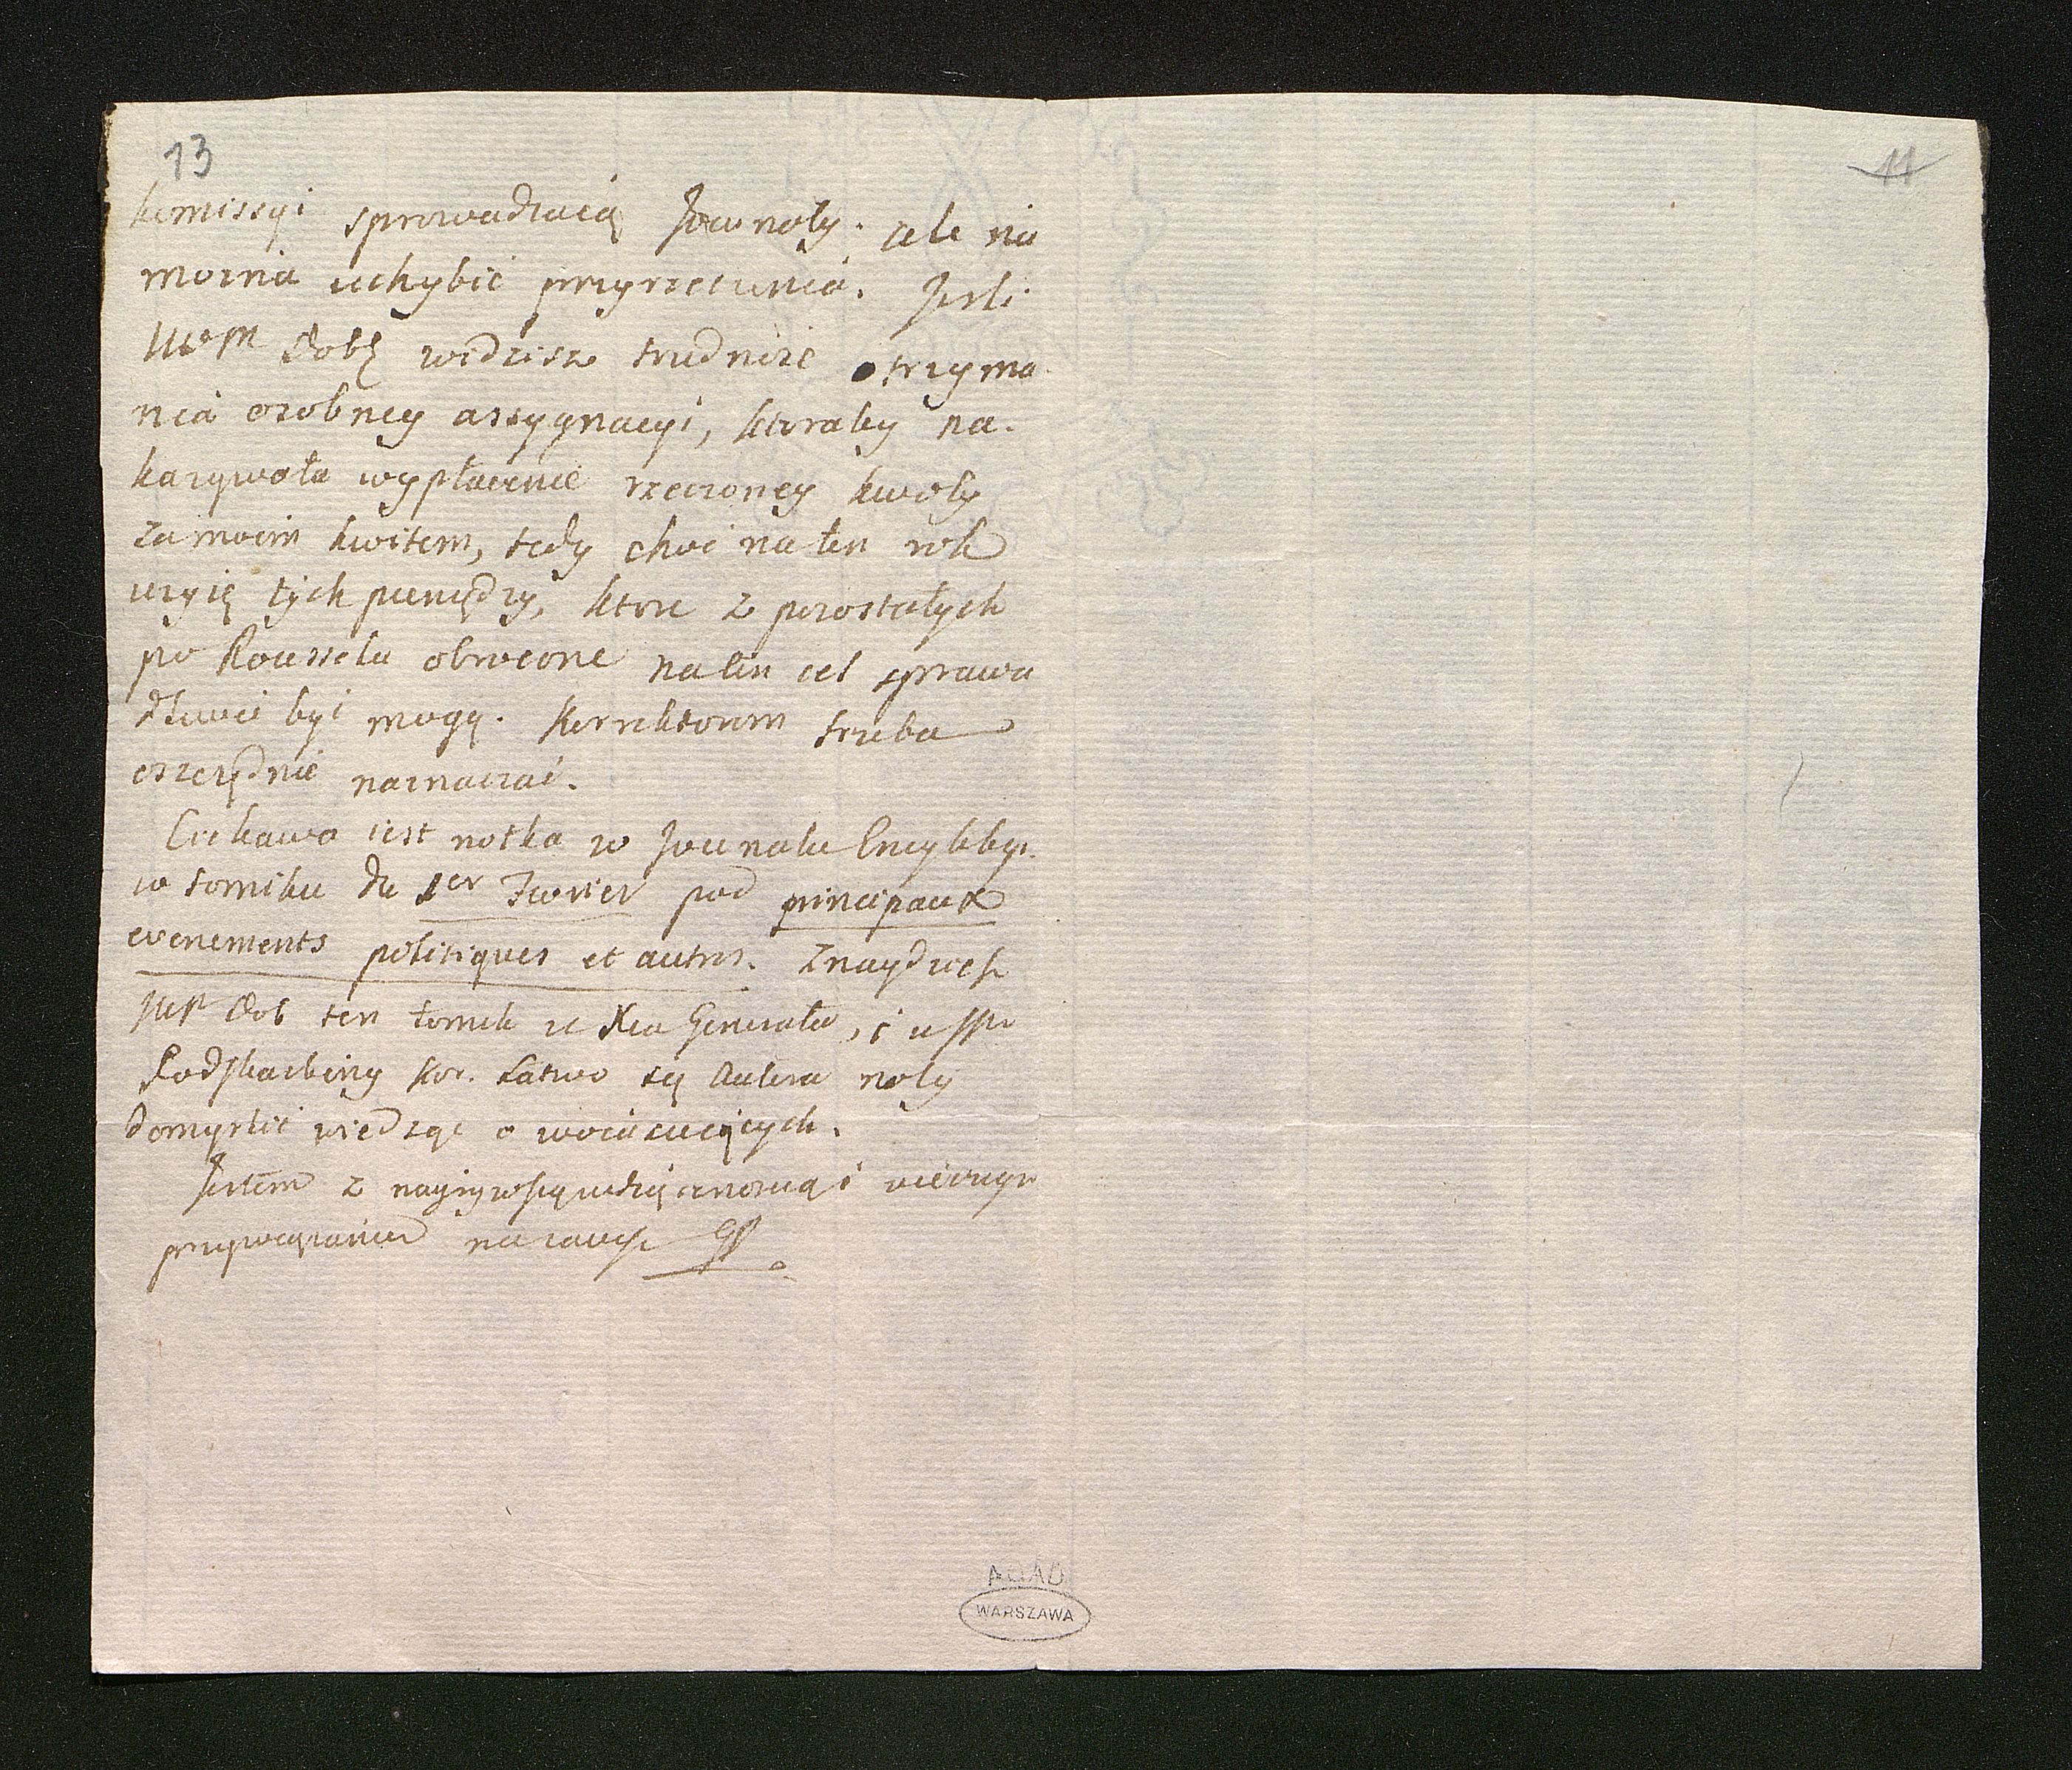 13
11
komissyi sprowadzaią Journały. ale nie
można uchybić przyrzeczenia. Jeśli
WMP Dobr widzisz trudność otrzyma
nia osobney assygnacyi, któraby na-
kazywała wypłacenie rzeczoney kwoty
za moim kwitem, tedy choć na ten rok
użyię tych pieniędzy, które z pozostałych
po Rousselu obrócone na ten cel sprawie
dliwie być mogą. Korrektorom trzeba
oszczędnie naznaczać.
Ciekawa iest notka w Journalu Encyklop.
w tomiku du 1er Fevrier pod principaux
evenements politiques et autres. Znaydziesz
WMP Dob ten tomik u Xcia Generała, i u JPi
Podskarbiny Kor. Łatwo się Autora noty
domyślić wiedząc o woiażuiących.
Jestem z nayżywszą wdzięcznością i wiecznym
przywiązaniem na zawsze GP
AGAD
WARSZAWA